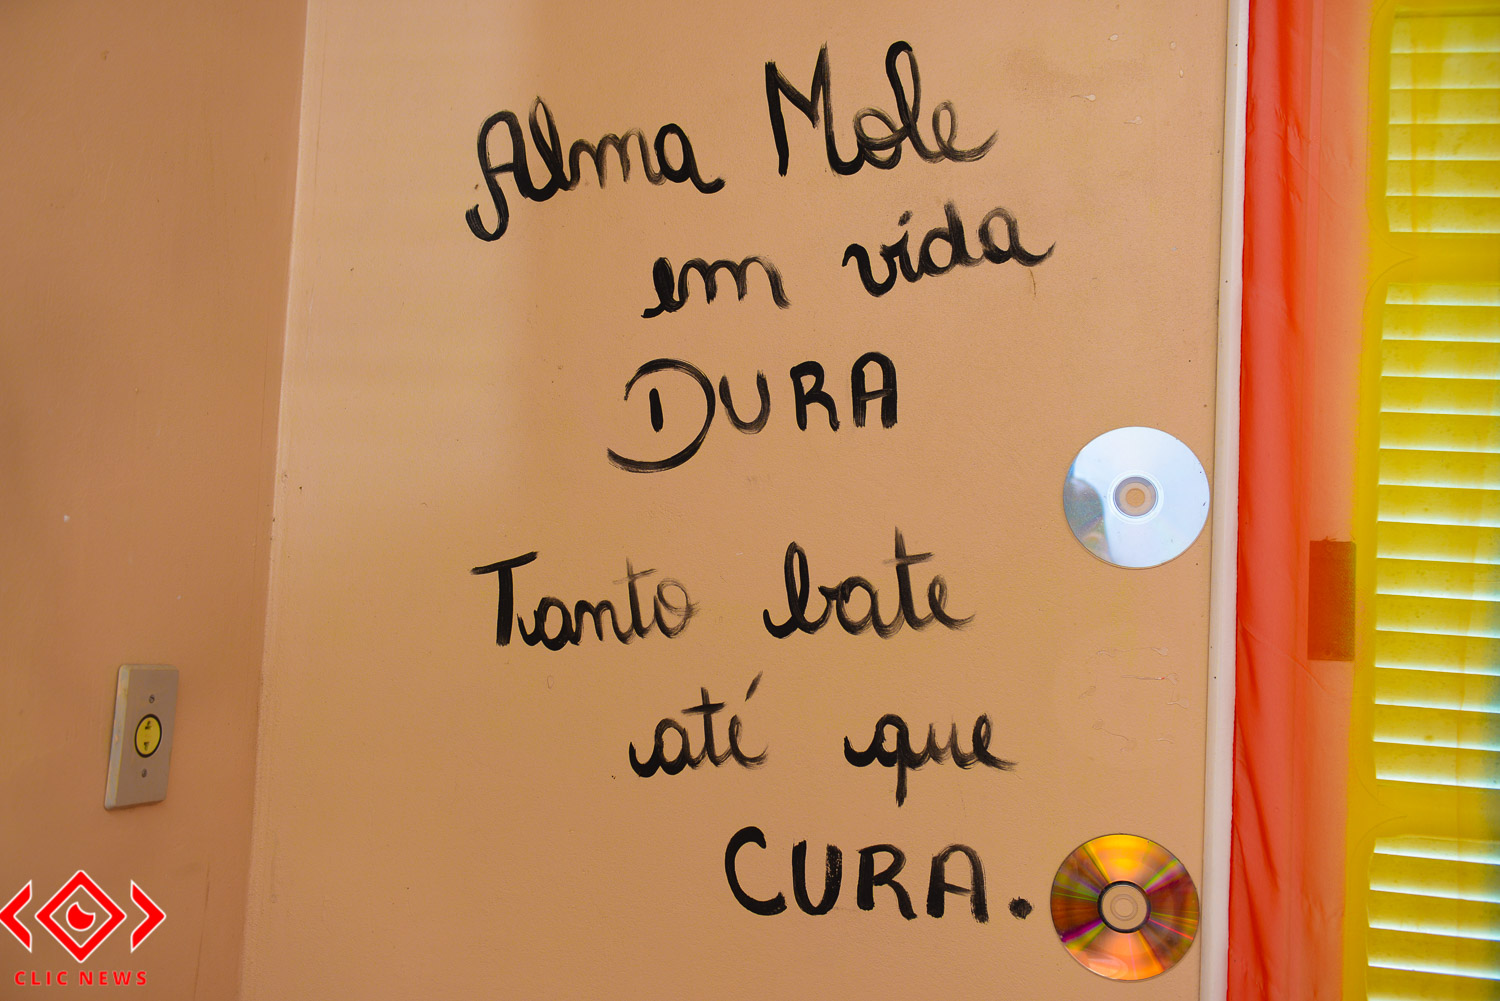 Alma Mole
em vida
DURA
Tanto bate
até que
CURA.
CLIC NEWS